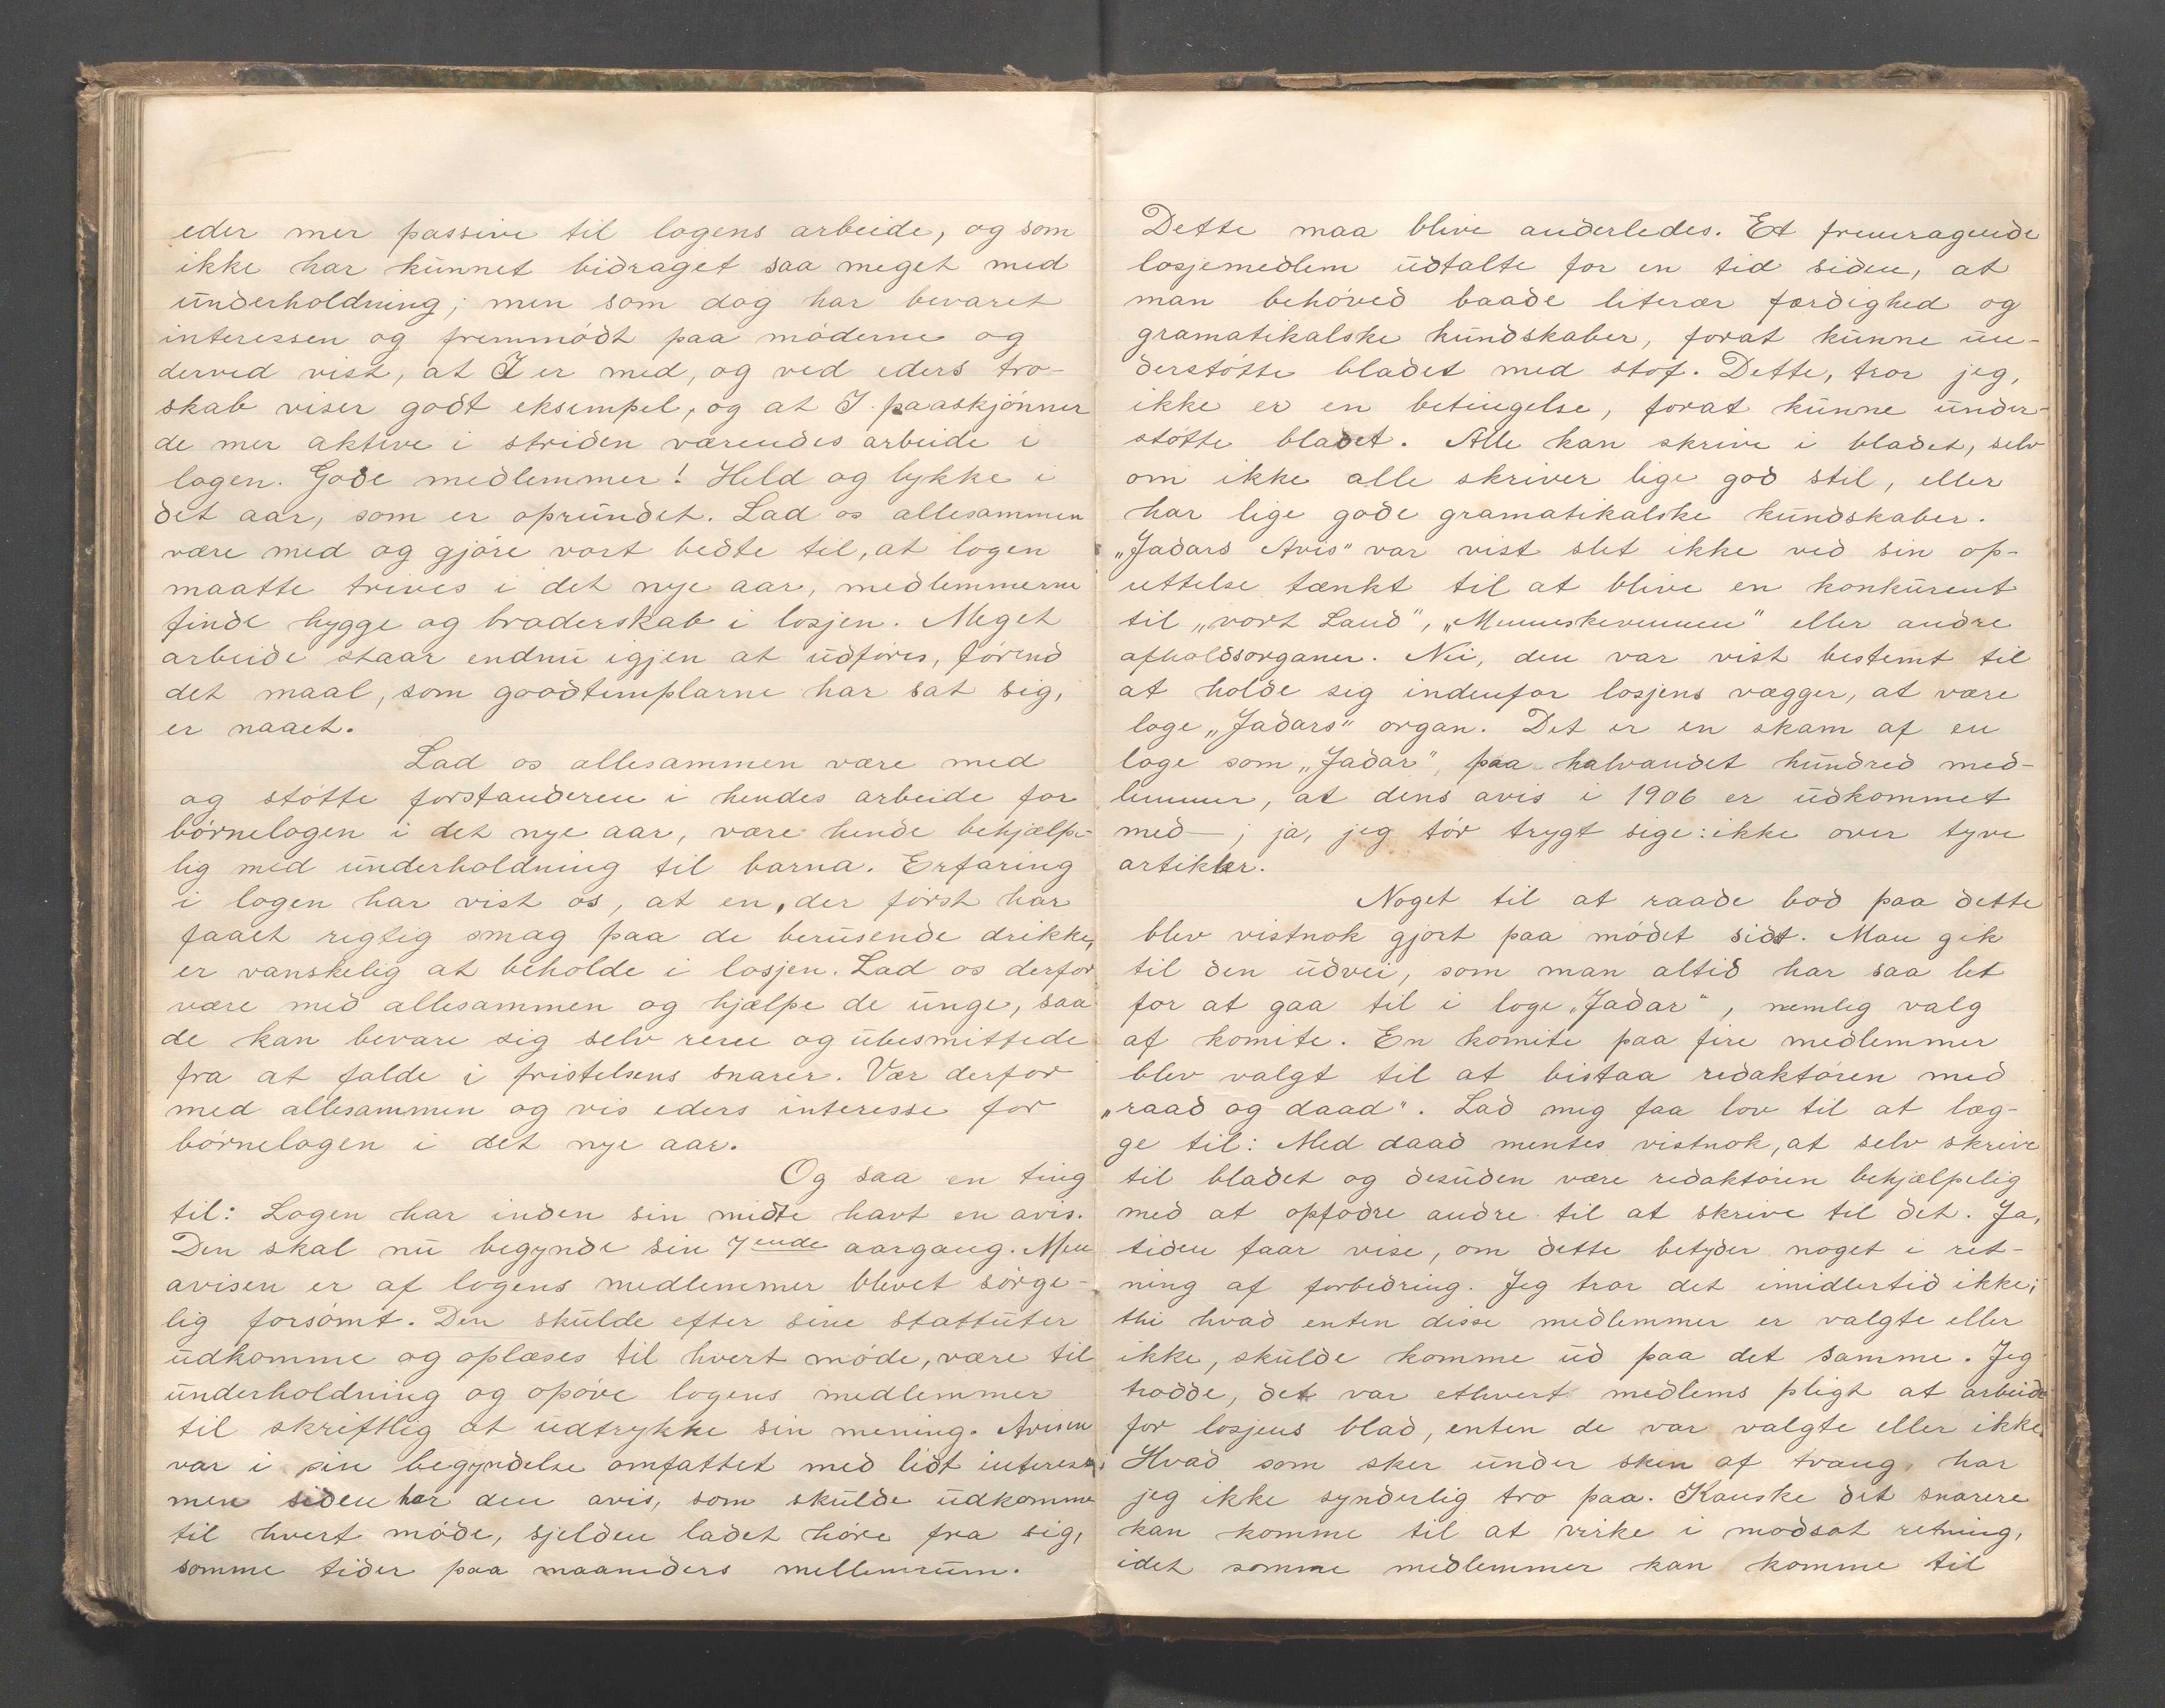 eder mer passive til logens arbeide, og som
ikke har kunnet bidraget saa meget med
underholdning; men som dog har bevaret
interessen og fremmødt paa møderne og
derved vist, at I er med, og ved eders tro-
skab viser godt eksempel, og at I paaskjønner
de mer aktive i striden værendes arbeide i
logen. Gode medlemmer! Held og lykke i
det aar, som er oprundet. Lad os allesammen
være med og gjøre vort bedte til, at logen
maatte trives i det nye aar, medlemmerne
finde hygge og broderskab i losjen. Meget
arbeide staar endnu igjen at udføres, førend
det maal, som goodtemplarne har sat sig,
er naaet.
Lad os allesammen være med
og støtte forstanderen i hendes arbeide for
børnelogen i det nye aar, være hende behjælpe-
lig med underholdning til barna. Erfaring
i logen har vist os, at en, der først har
faaet regtig smag paa de berusende drikke,
er vanskelig at beholde i losjen. Lad os derfor
være med allesammen og hjælpe de unge, saa
de kan bevare sig selv rene og ubesmittede
fra at falde i fristelsens snarer. Vær derfor
med allesammen og vis eders interesse for
børnelogen i det nye aar.
Og saa en ting
til: Logen har inden sin midte havt en avis.
Den skal nu begynde sin 7ende aargang. Men
avisen er af logens medlemmer blevet sørge-
lig forsømt. Den skulde efter sine stattuter
udkomme og oplæses til hvert møde, være til
underholdning og opøve logens medlemmer
til skriftlig at udtrykke sin mening. Avisen
var i sin begyndelse omfattet med lidt interesse,
men siden har den avis, som skulde udkomme
til hvert møde, sjelden ladet høre fra sig,
somme tider paa maaneders mellemrum.
Dette maa blive anderledes. Et fremragende
losjemedlem udtalte for en tid siden, at
man behøved baade literær færdighed og
gramatikalske kundskaber, forat kunne un-
derstøtte bladet med stof. Dette, tror jeg,
ikke er en betingelse, forat kunne under-
støtte bladet. Alle kan skrive i bladet, selv
om ikke alle skriver lige god stil, eller
har lige gode gramatikalske kundskaber.
„Jadars Avis" var vist slet ikke ved sin op-
rettelse tænkt til at blive en konkurent
til „vort Land", „Menneskevennen" eller andre
afholdsorganer. Nei, den var vist bestemt til
at holde sig indenfor losjens vægger, at være
loge „Jadars" organ. Det er en skam af en
loge som „Jadar", paa halvandet hundred med-
lemmer, at dens avis i 1906 er udkommet
med —; ja, jeg tør trygt sige: ikke over tyve
artikler.
Noget til at raade bod paa dette
blev vistnok gjort paa mødet sidst. Man gik
til den udvei, som man altid har saa let
for at gaa til i loge „Jadar", nemlig valg
af komite. En komite paa fire medlemmer
blev valgt til at bistaa redaktøren med
„raad og daad". Lad mig faa lov til at læg-
ge til: Med daad mentes vistnok, at selv skrive
til bladet og desuden være redaktøren behjælpelig
med at opfodre andre til at skrive til det. Ja,
tiden faar vise, om dette betyder noget i ret-
ning af forbedring. Jeg tror det imidlertid ikke;
thi hvad enten disse medlemmer er valgte eller
ikke, skulde komme ud paa det samme. Jeg
trodde, det var ethvert medlems pligt at arbeide
for losjens blad, enten de var valgte eller ikke.
Hvad som sker under skin af tvang, har
jeg ikke synderlig tro paa. Kanske det snarere
kan komme til at virke i modsat retning,
idet somme medlemmer kan komme til